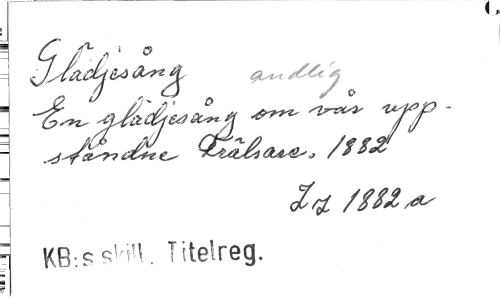 Glädjesång andlig
En glädjesång om vår upp-
ståndne Frälsare. 1882
Z z 1882 a
KB:s skill. Titelreg.